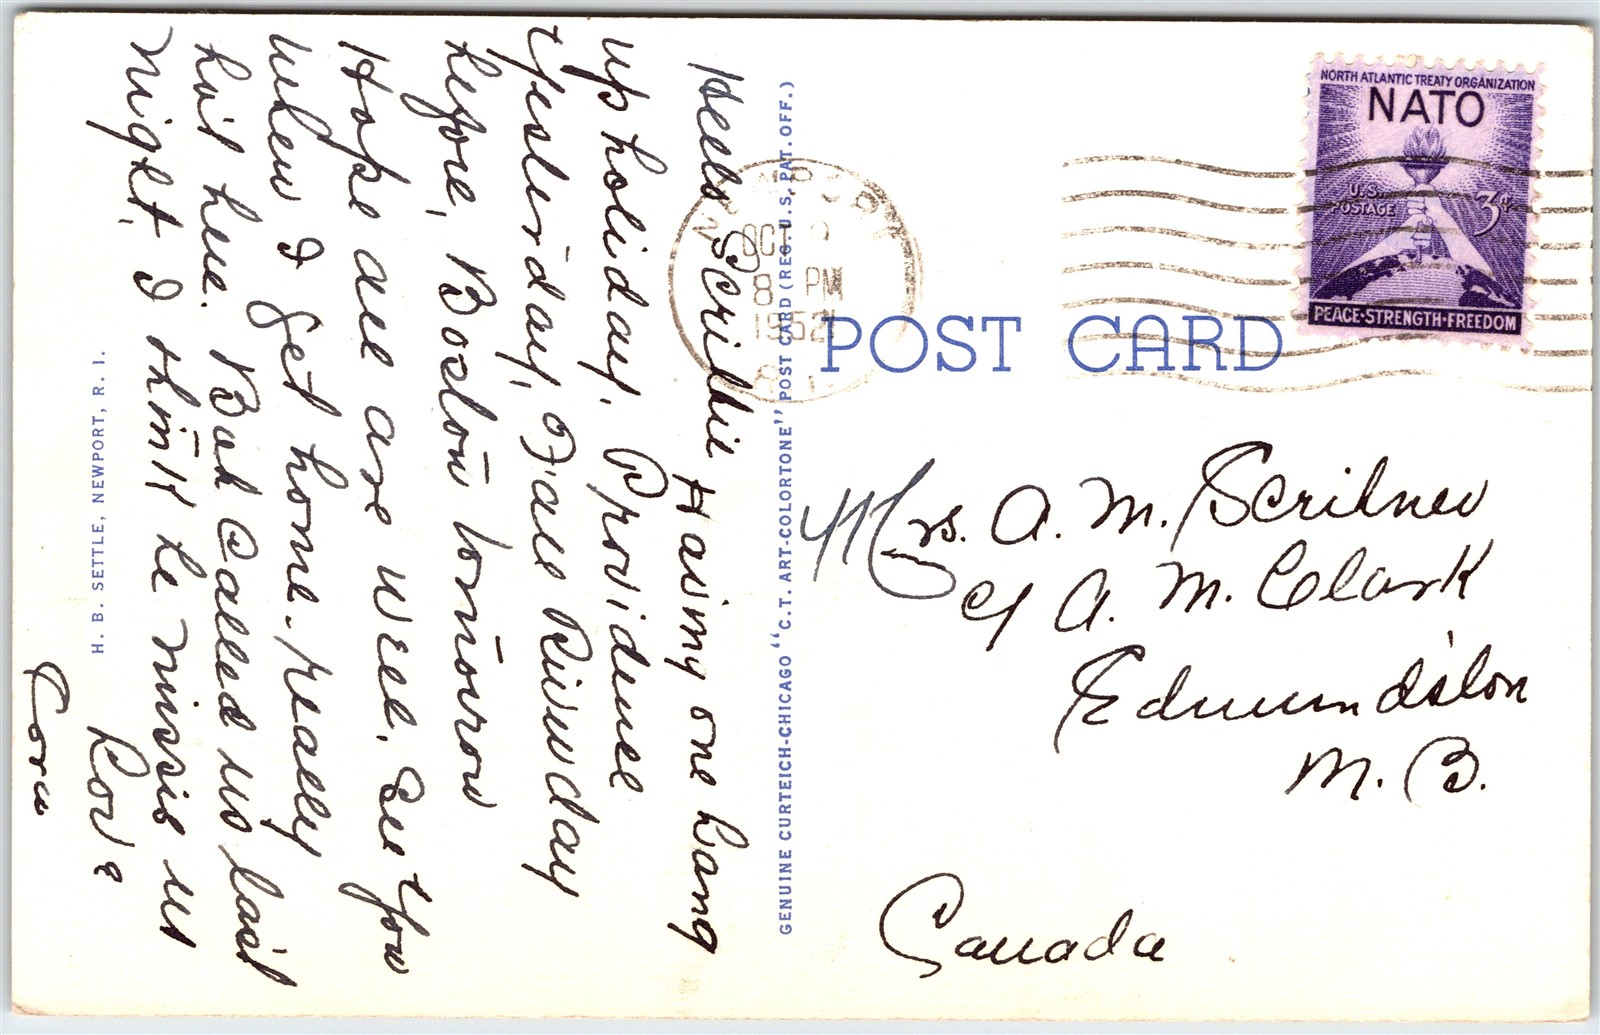 Hello Scribbie Having one bang
up holiday, Providence
yesterday, Fall River day
before, Boston tomorrow
Hope all are well. See you
when I get home. really
hot here. Bob called us last
night, I think he misses us
Love
Cora
H. B. SETTLE, NEWPORT, R. I.
GENUINE CURTEICH-CHICAGO "C.T. ART-COLORTONE" POST CARD (REG. U.S. PAT. OFF.)
NEWPORT
OC
8 PM
1952
R.I.
NORTH ATLANTIC TREATY ORGANIZATION
NATO
U.S. POSTAGE 3¢
PEACE·STRENGTH·FREEDOM
POST CARD
Mrs. A. M. Scribner
c/ A. M. Clark
Edmundston
N. B.
Canada